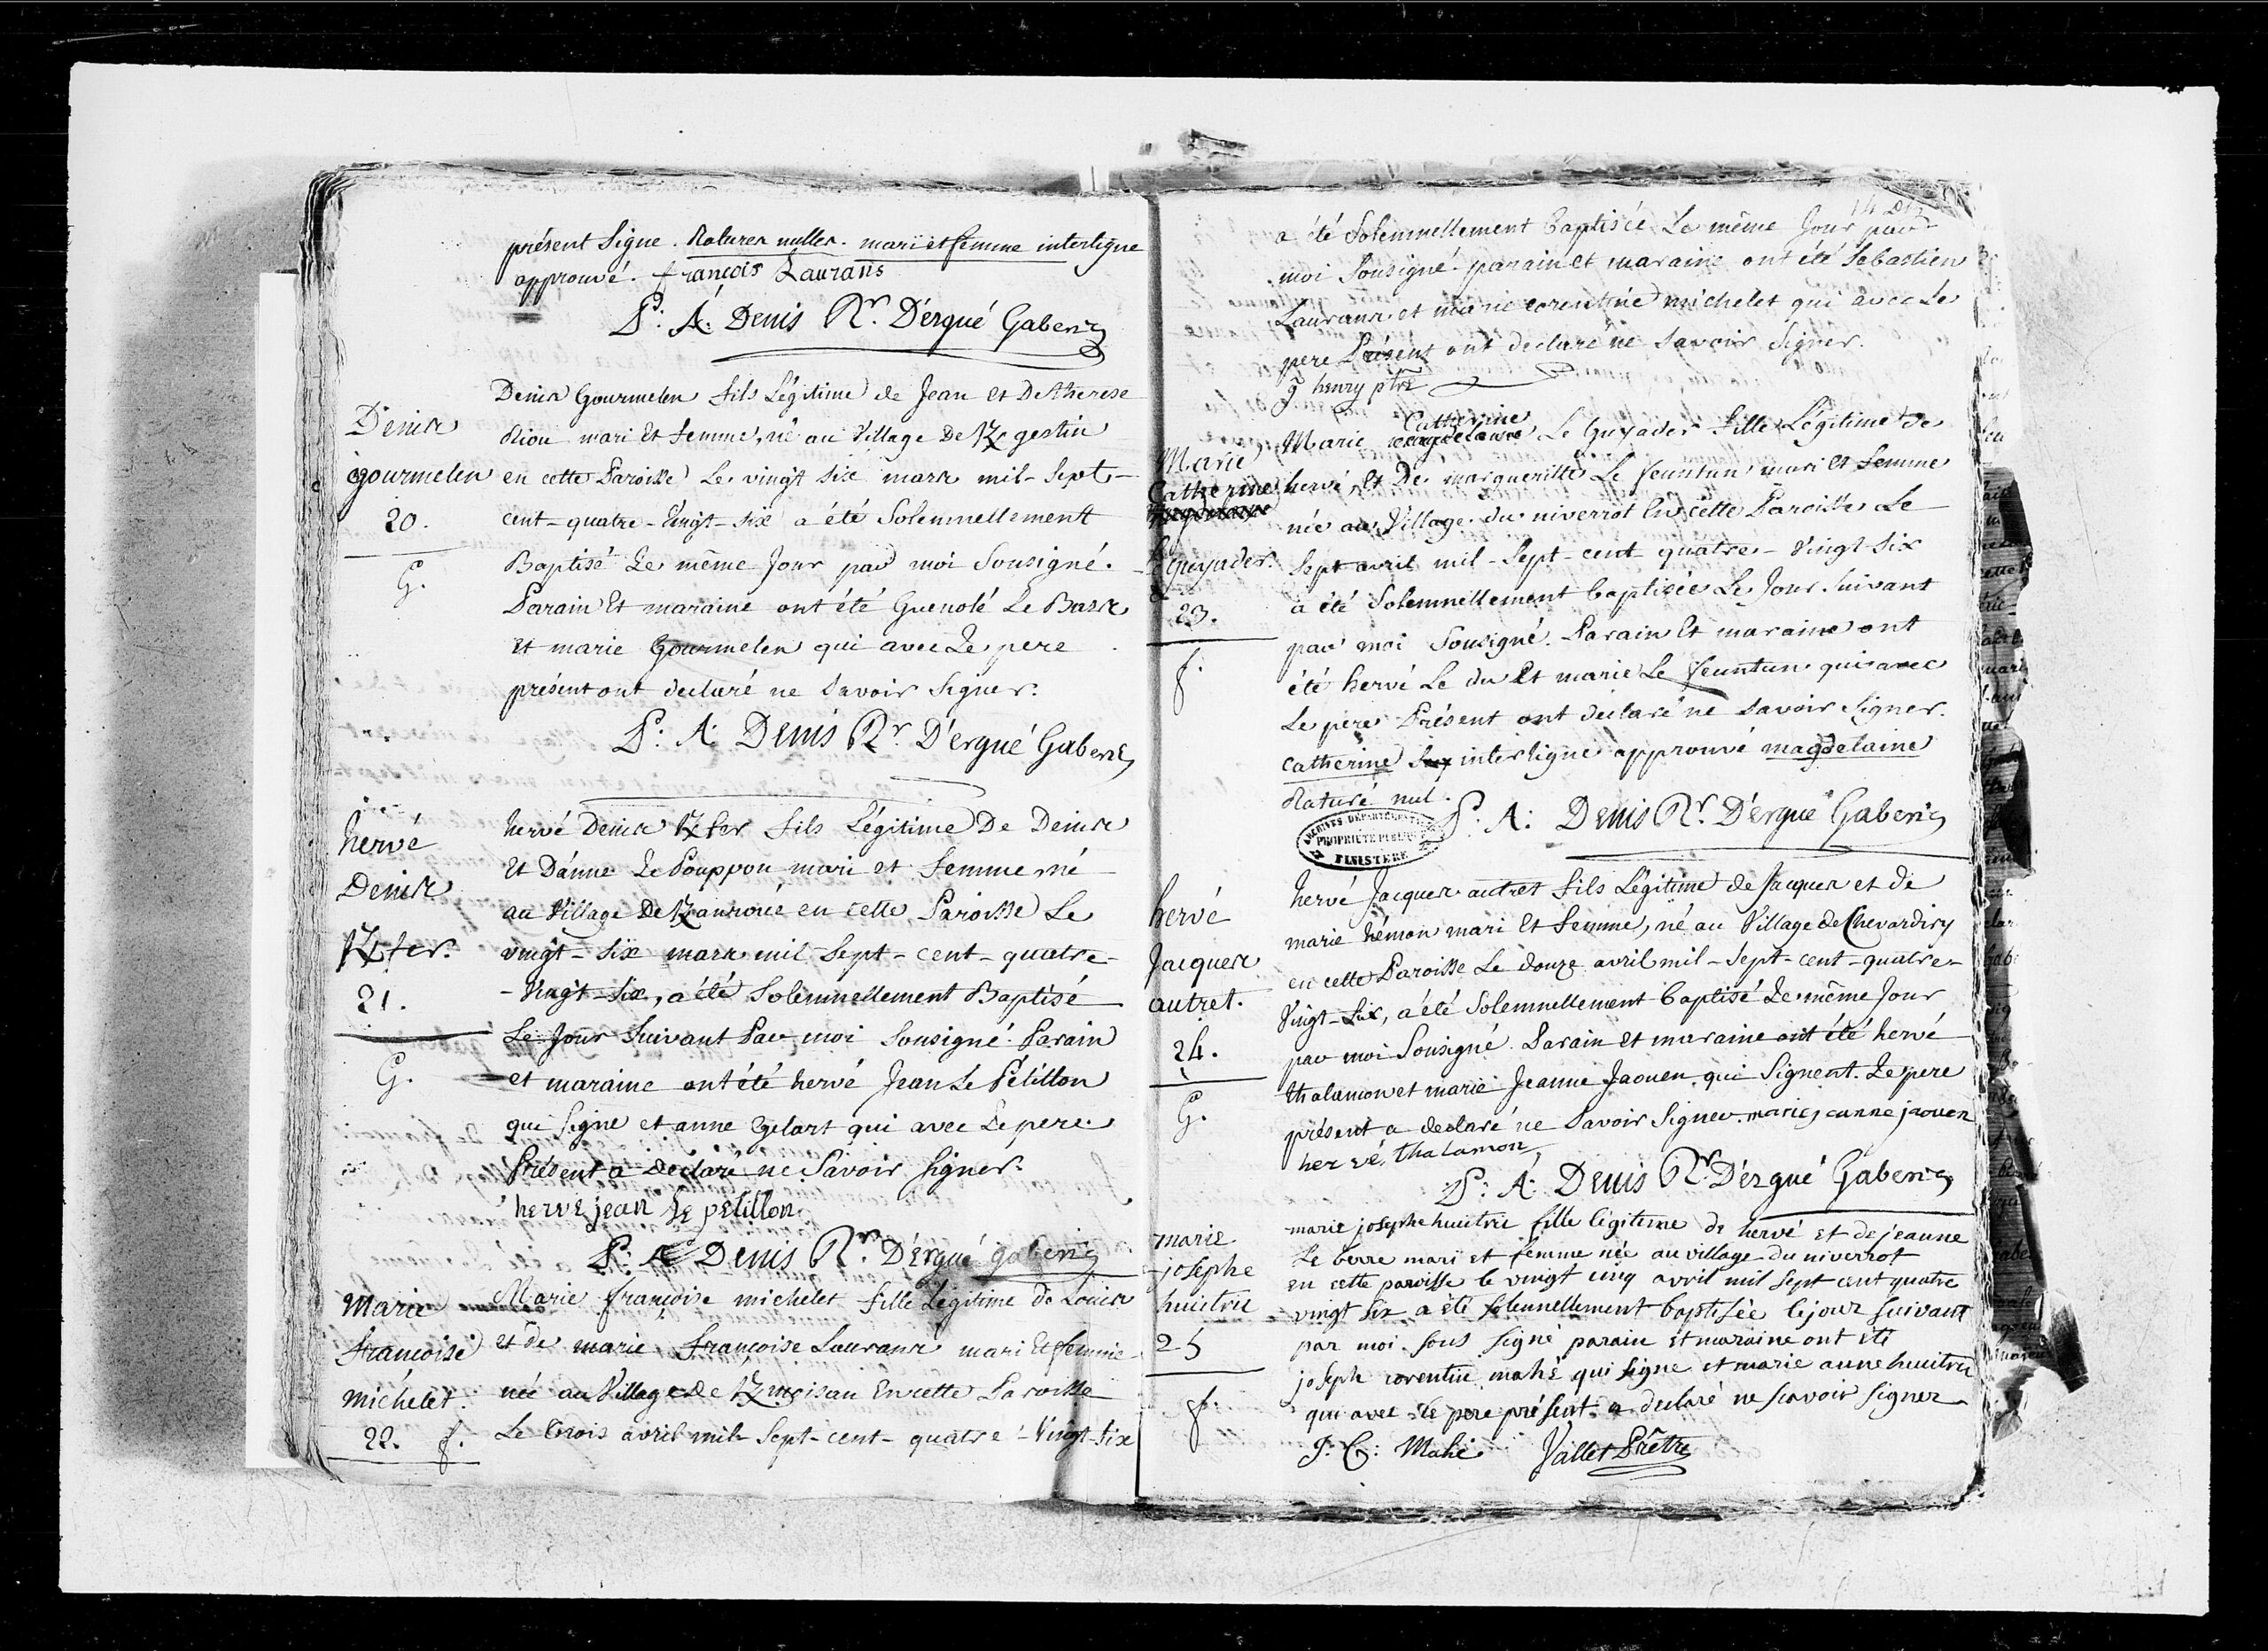 présent Signe. Ratures nulles. mari et femme interligne
approuvé. françois Laurans
P: A: Denis Rr. D'ergué Gaberic
Denis
gourmelen
20.
G.
Denis Gourmelen fils Légitime de Jean et De Therese
Riou mari Et femme, né au Village De Kgestin
en cette Paroisse Le vingt six mars mil-Sept-
cent-quatre-Vingt-six a été Solemnellement
Baptisé Le même Jour par moi Sousigné.
Parain Et maraine ont été Guenolé Le Bars
Et marie Gourmelen qui avec Le pere
présent ont declaré ne Savoir Signer.
P: A: Denis Rr D'ergué Gaberic
hervé
Denis
Kfer.
21.
G.
hervé Denis Kfer fils Légitime De Denis
Et D'anne Le Pouppon mari et femme né
au Village De Kanroué en cette Paroisse Le
vingt-six mars mil Sept-cent-quatre-
-Vingt-Six, a été Solemnellement Baptisé
Le Jour Suivant Par moi Sousigné. Parain
et maraine ont été hervé Jean Le Pétillon
qui Signe et anne gelart qui avec Le pere
Présent a déclaré ne Savoir Signer.
herve jean Le petillon
P: A: Denis Rr. D'Ergué gaberic
Marie
françoise
michelet.
22. f.
Marie françoise michelet fille Légitime De Louis
et de marie françoise Laurans mari Et femme
née au Village De Kmoisan En cette Paroisse
Le trois avril mil-Sept-cent-quatre-Vingt-six
a été Solemnellement baptisée Le même Jour par
moi Sousigné. parain et maraine ont été Sebastien
Laurans et marie corentine michelet qui avec Le
pere Présent ont declaré ne Savoir Signer.
g henry ptre
Marie
Catherine
magdelaine
Le Guyader.
23.
f.
Catherine
Marie magdelaine Le Guyader fille Légitime de
hervé Et De margueritte Le feuntun mari Et femme
née au Village du niverrot En cette Paroisse Le
Sept avril mil-Sept-cent-quatre-Vingt-Six
a été Solemnellement baptisée Le Jour Suivant
par moi Sousigné. Parain Et maraine ont
été hervé Le du Et marie Le feuntun qui avec
Le pere Présent ont declaré ne Savoir Signer.
catherine interligne approuvé magdelaine
Raturé nul.
P: A: Denis Rr. D'ergué Gaberic
ARCHIVES DÉPARTEMENTALES
PROPRIÉTÉ PUBLIQUE
FINISTÈRE
hervé
Jacques
autret.
24.
G.
hervé Jacques autret fils Légitime de Jacques et de
marie hémon mari Et femme, né au Village de Chevardiry
en cette Paroisse Le douze avril mil-Sept-cent-quatre-
Vingt-Six, a été Solemnellement baptisé Le même Jour
par moi Sousigné. Parain Et maraine ont été hervé
thalamon et marie Jeanne Jaouen qui Signent. Le pere
présent a declaré ne Savoir Signer. marie jeanne jaouen
hervé thalamon
P: A: Denis Rr. D'ergué Gaberic
marie
josephe
huitric
25
f.
marie josephe huitric fille légitime de hervé et de jeanne
Le berre mari et femme née au village du niverrot
en cette paroisse le vingt cinq avril mil sept cent quatre
vingt six a été solennellement baptisée le jour suivant
par moi sous signé parain et maraine ont été
joseph corentin mahé qui signe et marie anne huitric
qui avec le pere présent a declaré ne scavoir signer
J: C: Mahé Vallet Prêtre